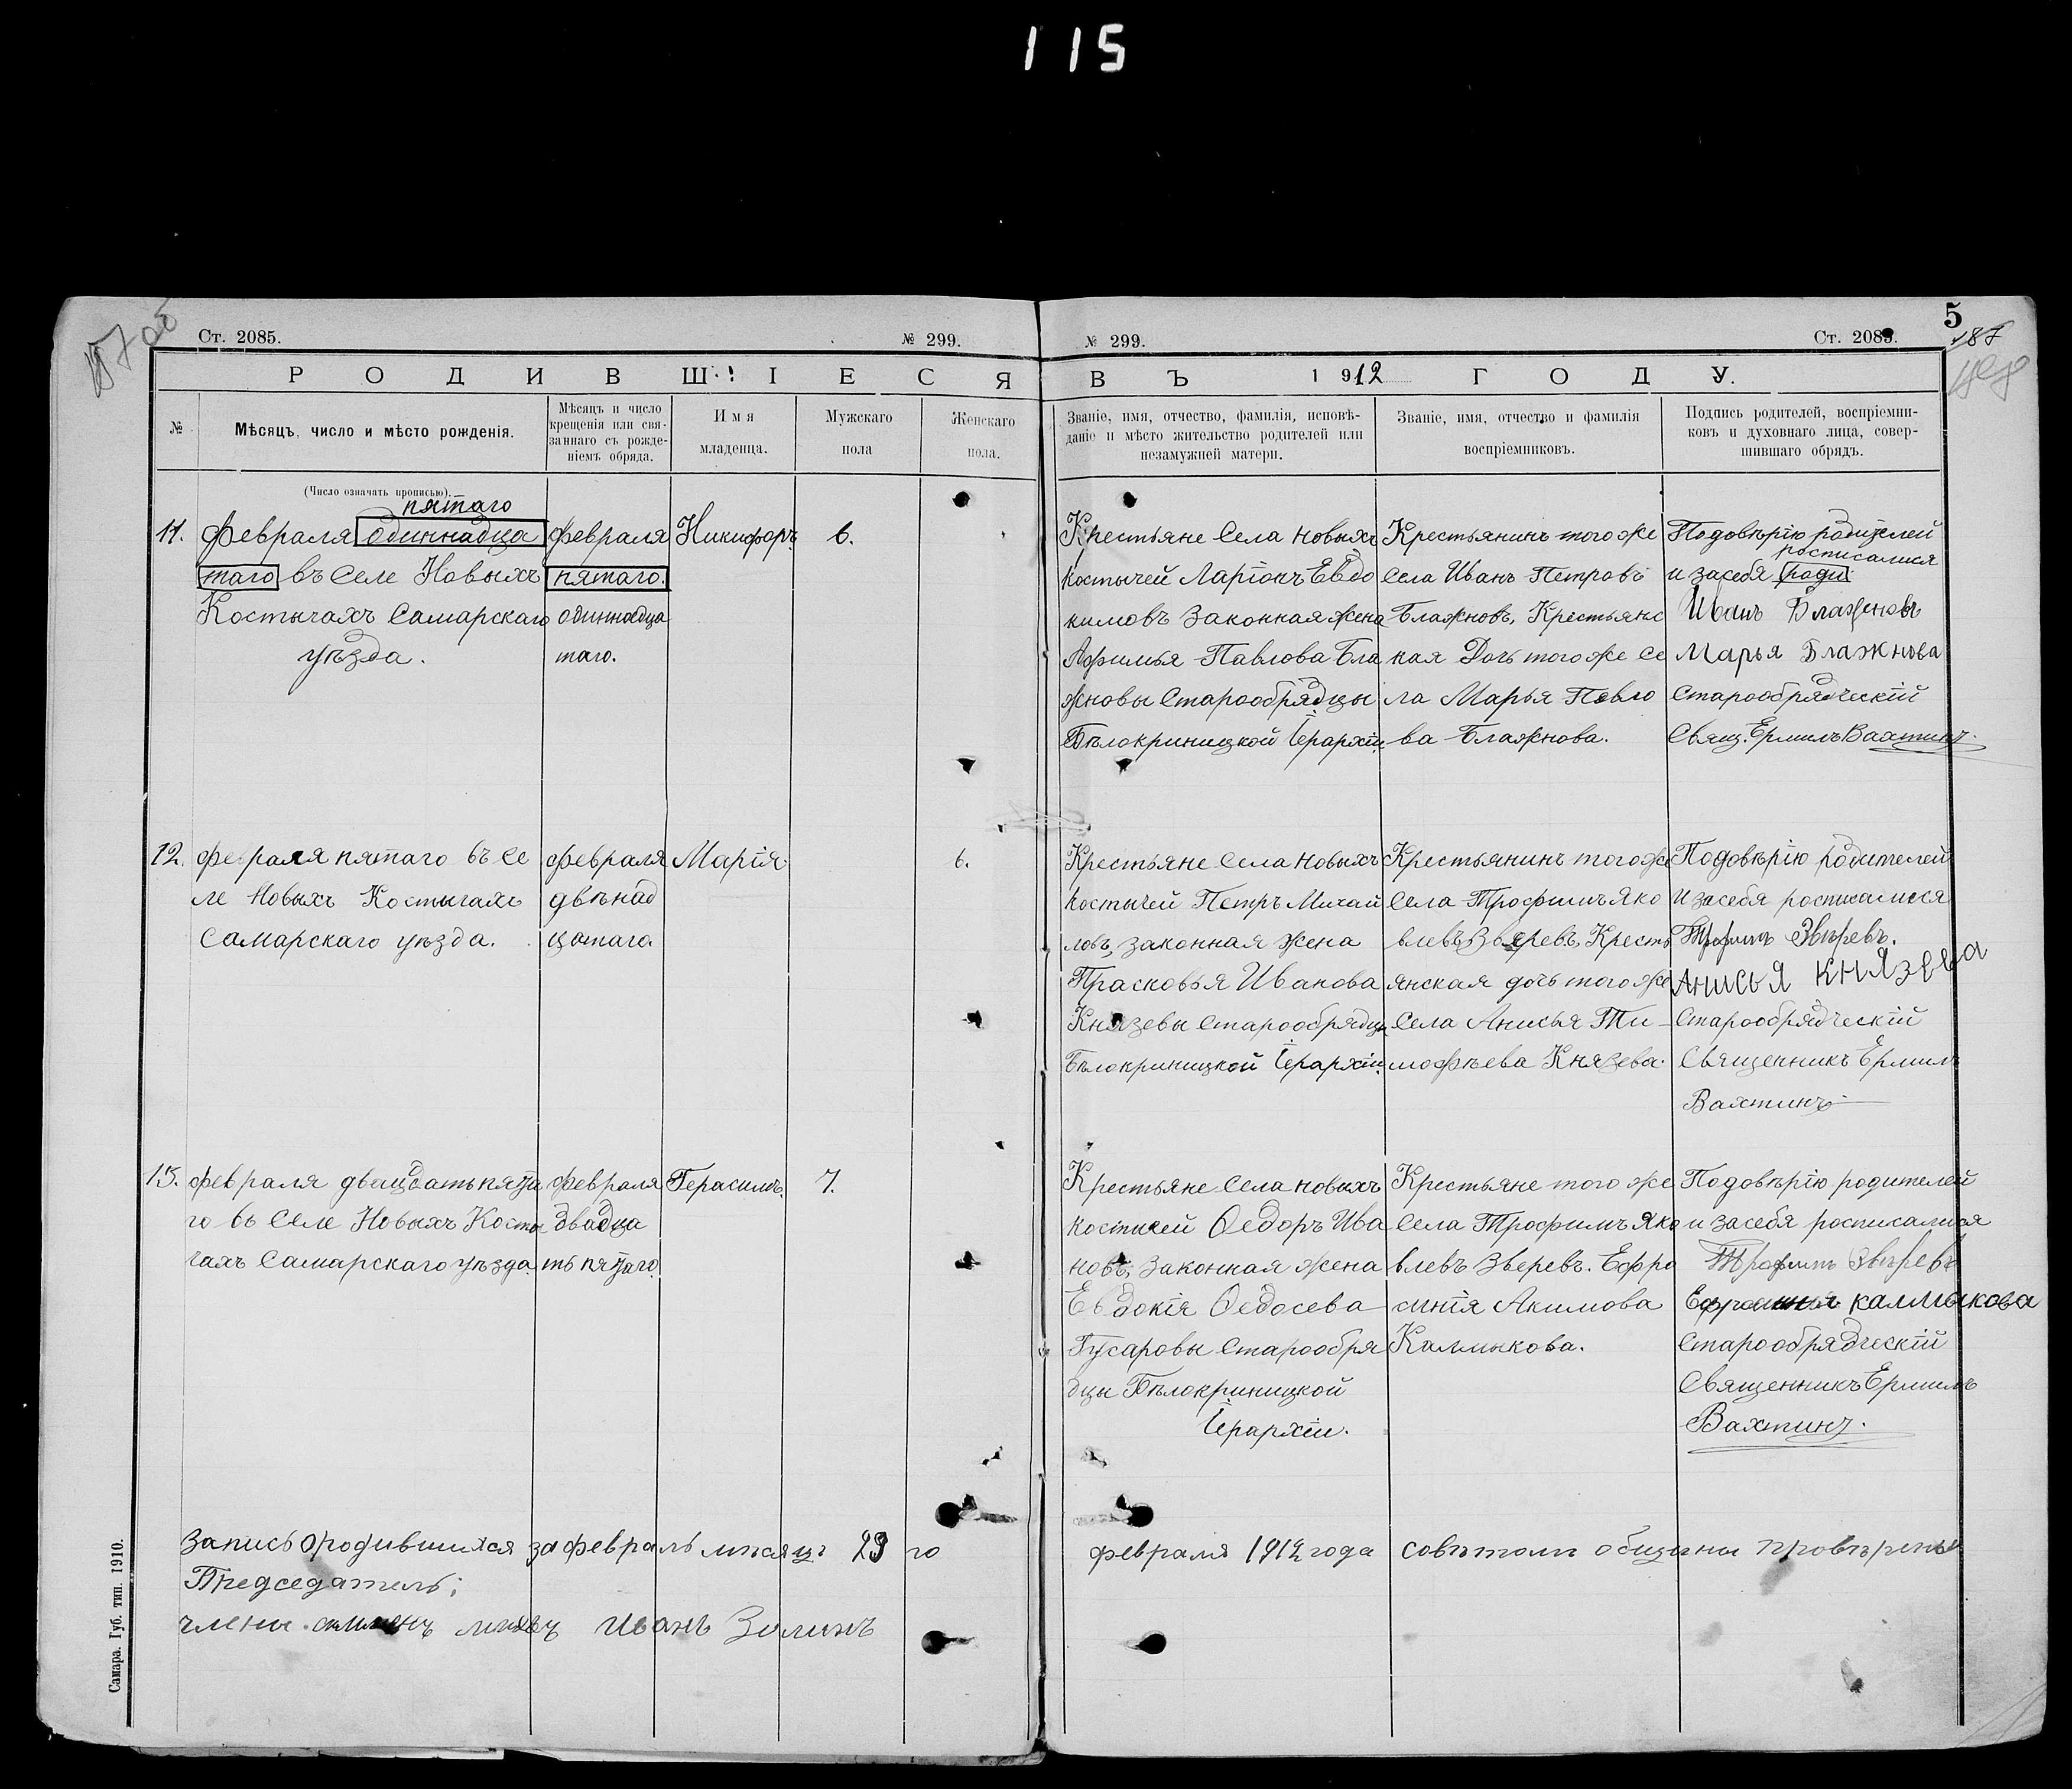 115
Ст. 2085.
№ 299.
№ 299.
Ст. 2085.
5
187
РОДИВШІЕСЯ
ВЪ 1912 ГОДУ.
№
Мѣсяцъ, число и мѣсто рожденія.
Мѣсяцъ и число
крещенія или свя-
заннаго съ рожде-
ніемъ обряда.
Имя
младенца.
Мужскаго
пола
Женскаго
пола.
Званіе, имя, отчество, фамилія, исповѣ-
даніе и мѣсто жительство родителей или
незамужней матери.
Званіе, имя, отчество и фамилія
воспріемниковъ.
Подпись родителей, воспріемни-
ковъ и духовнаго лица, совер-
шившаго обрядъ.
(Число означать прописью).
11.
пятаго
Февраля одиннадца
таго въ Селе Новыхъ
Костычахъ Самарскаго
уѣзда.
февраля
пятаго.
одиннадца
таго.
Никифоръ.
6.
Крестьяне Села Новыхъ
Костычей Ларіонъ Евдо
кимовъ Законная жена
Афимья Павлова Бла
жновы Старообрядцы
Бѣлокриницкой Іерархіи.
Крестьянинъ того же
Села Иванъ Петровъ
Блажновъ, Крестьянс
кая Дочь того же Се
ла Марья Павло
ва Блажнова.
Подовѣрію родителей
росписалися
и засебя роди
Иванъ Блаженовъ
Марья Блажнова
Старообрядческій
Свящ. Ермилъ Вахтинъ.
12.
февраля пятаго въ Се
ле Новыхъ Костычахъ
Самарскаго уѣзда.
февраля
двѣнад
цатаго.
Марія
6.
Крестьяне Села Новыхъ
Костычей Петръ Михай
ловъ, законная жена
Прасковья Иванова
Князевы Старообрядцы
Бѣлокриницкой Іерархіи.
Крестьянинъ того же
Села Трофимъ Яко
влевъ Зверевъ, Кресть
янская дочь того же
Села Анисья Ти-
мофѣева Князева.
Подовѣрію родителей
и засебя росписалися
Трофимъ Звѣревъ.
Анисья Князева
Старообрядческій
Священникъ Ермилъ
Вахтинъ
13.
февраля двадцать пята
го въ Селе Новыхъ Косты
чахъ Самарскаго уѣзда.
февраля
двадца
ть пятаго.
Герасимъ.
7.
Крестьяне Села Новыхъ
Костычей Ѳедоръ Ива
новъ, Законная жена
Евдокія Ѳедосева
Гусаровы Старообря
дцы Бѣлокриницкой
Іерархіи.
Крестьяне того же
Села Трофимъ Яко
влевъ Зверевъ. Ефро
синія Акимова
Калмыкова.
Подовѣрію родителей
и засебя росписалися
Трофимъ Звѣревъ
калмыкова
Старообрядческій
Священникъ Ермилъ
Вахтинъ.
Запись ородившихся за февраль мѣсяцъ 29 го февраля 1912 года совѣтомъ общины провѣрены
Председатель;
члены Иванъ Золинъ
Самара. Губ. тип. 1910.